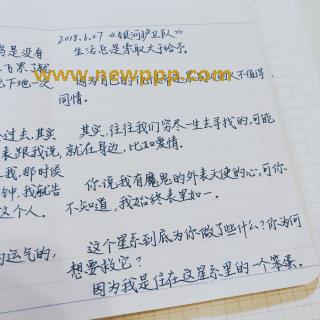 当是没有
下地一次
2018.6.27 《银河护卫队》
生活总是索取大于给予。
www.newppp.com
因为自己的
不值得
同情。
过去，其实
表跟我说，
我，那时候
钟，我就告
这个人。
其实，往往我们穷尽一生去寻找的，可能
就在身边，比如爱情。
你说我有魔鬼的外表天使的心，可你
不知道，我始终表里如一。
的运气的，
这个星系到底为你做了些什么？你为何
想要救它？
因为我是住在这星系里的一个笨蛋。